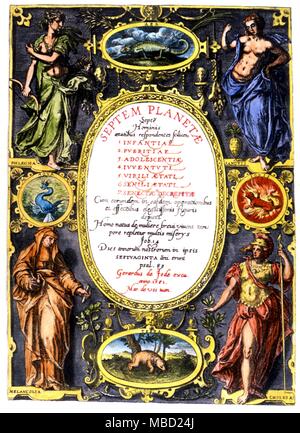 SEPTEM PLANETÆ
Septe
Hominis
ætatibus respondentes septem
1 INFANTIÆ
2 PVERITIÆ
3 ADOLESCENTIÆ
4 IVVENTVTI
5 VIRILI ÆTATI
6 SENILI ÆTATI
7 SENECTÆ DECREPITÆ
Cum eorundem in easdem operationibus
et effectibus elegantissimis figuris
depicti
Homo natus de muliere brevi vivens tem
pore repletur multis miserijs
Job 14
Dies annorum nostrorum in ipsis
SEPTVAGINTA anni erunt
psal. 89
Gerardus de Jode excu
anno 1581
Mar de vos inuen.
PHLEGMA
SANGVIS
MELANCOLIA
CHOLERA
alamy
Image ID: MBD24J
www.alamy.com